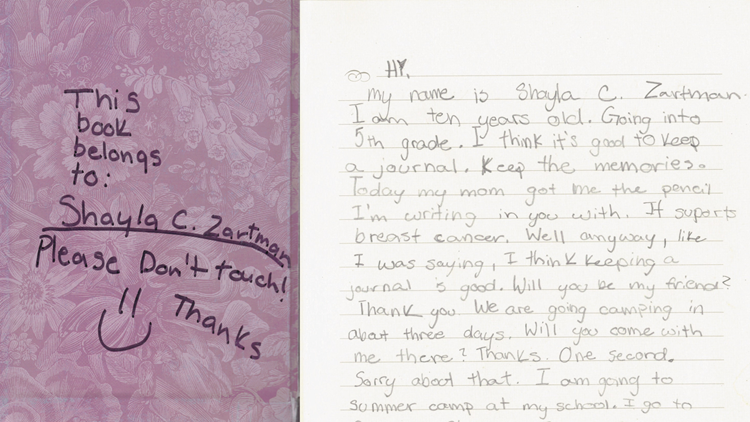 This
book
belongs
to:
Shayla C. Zartman
Please Don't touch!
Thanks
HY.
my name is Shayla C. Zartman.
I am ten years old. Going into
5th grade. I think it's good to keep
a journal. Keep the memories.
Today my mom got me the pencil
I'm writing in you with. It suports
breast cancer. Well anyway, like
I was saying, I think keeping a
journal is good. Will you be my friend?
Thank you. We are going camping in
about three days. Will you come with
me there? Thanks. One second.
Sorry about that. I am going to
summer camp at my school. I go to